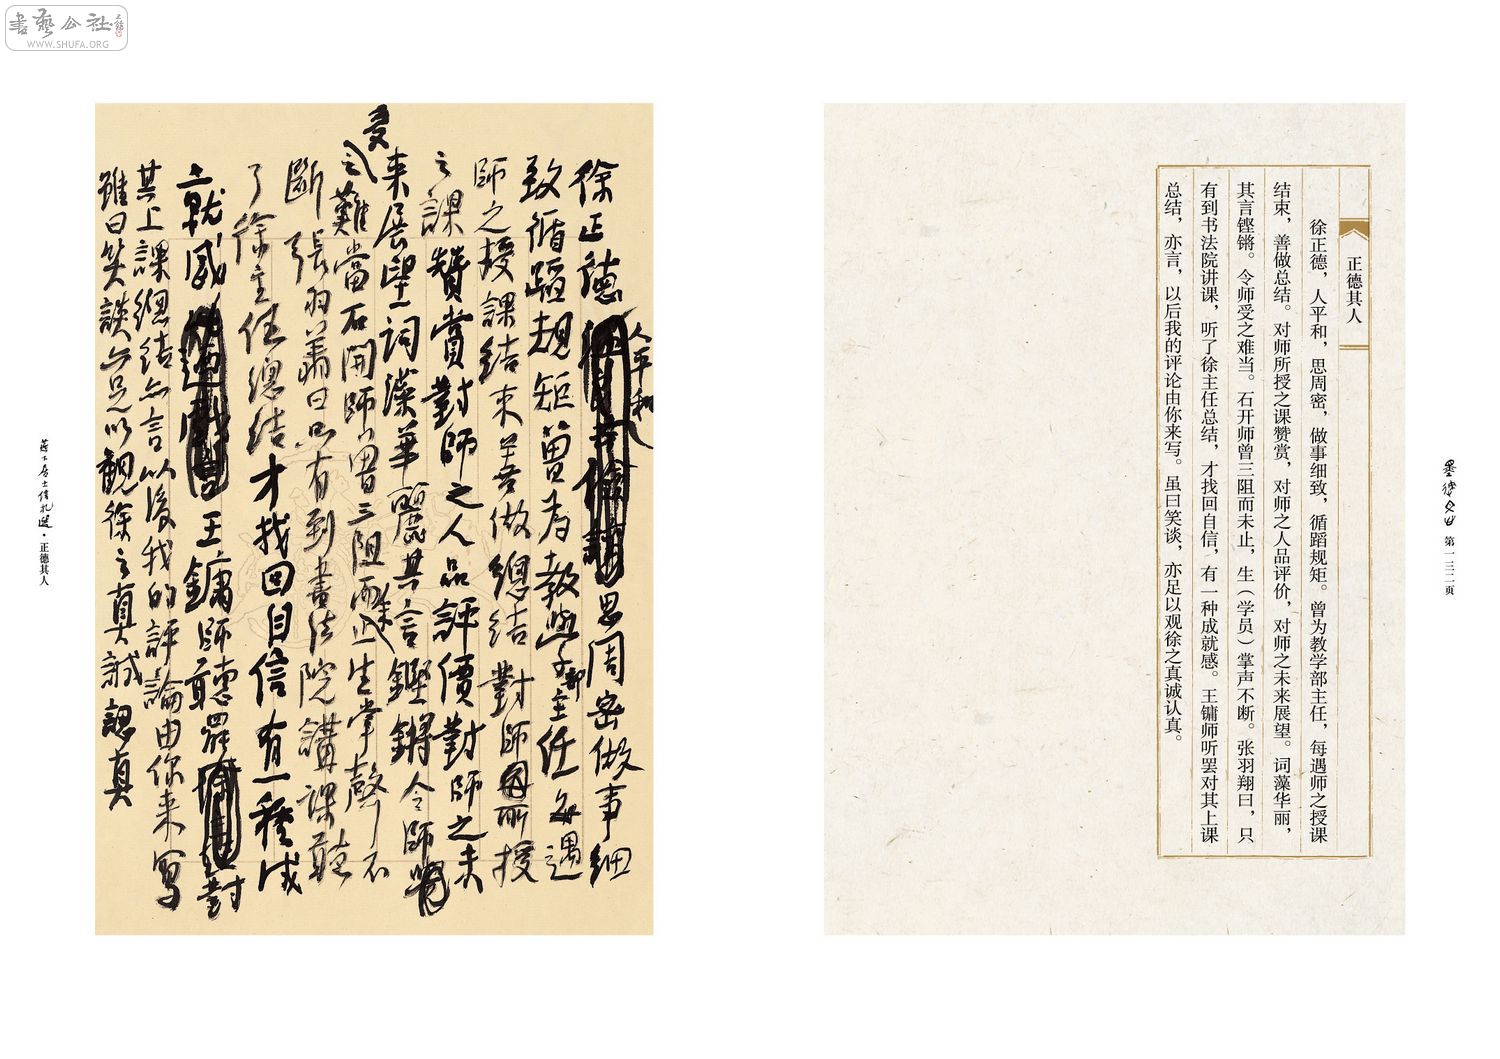 書藝公社
WWW.SHUFA.ORG
正德其人
徐正德，人平和，思周密，做事细致，循蹈规矩。曾为教学部主任，每遇师之授课
结束，善做总结。对师所授之课赞赏，对师之人品评价，对师之未来展望。词藻华丽，
其言铿锵。令师受之难当。石开师曾三阻而未止，生（学员）掌声不断。张羽翔曰，只
有到书法院讲课，听了徐主任总结，才找回自信，有一种成就感。王镛师听罢对其上课
总结，亦言，以后我的评论由你来写。虽曰笑谈，亦足以观徐之真诚认真。
第一三二页
徐正德人平和思周密做事细
致循蹈規矩曾为教學部主任每遇
師之授課結束善做總结對師所授
之課贊賞對師之人品評價對師之未
来展望詞藻華麗其言鏗鏘令師
受之難當石開師曾三阻而未止生掌聲不
斷張羽翔曰只有到書法院講課聽
了徐主任總结才找回自信有一種成
就感王鏞師聽罷對
其上課總結亦言以後我的評論由你来寫
雖曰笑談亦足以觀徐之真誠認真
·正德其人